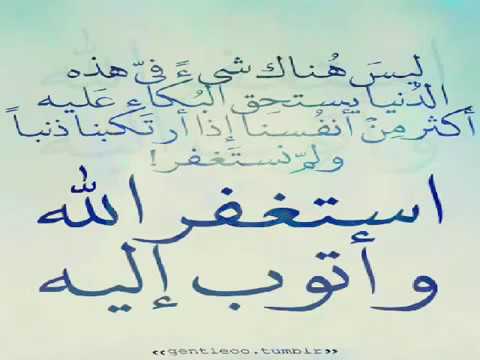 ليسَ هُناك شيءً فيّ هذه
الدُنيا يستحق البُكاءِ عَليه
أكثر مِنْ أنفُسنَا إذا أرتَكبنا ذنباً
ولمّ نستَغفر!
استغفر الله
وأتوب إليه
<<gentleoo.tumblr>>